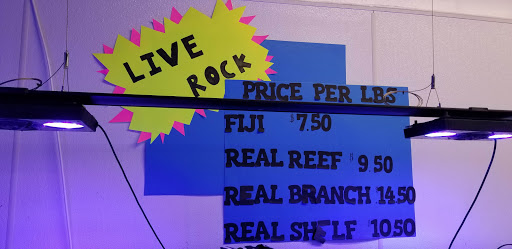 LIVE
ROCK
PRICE PER LBS
FIJI $7.50
REAL REEF $9.50
REAL BRANCH 14.50
REAL SHELF $10.50